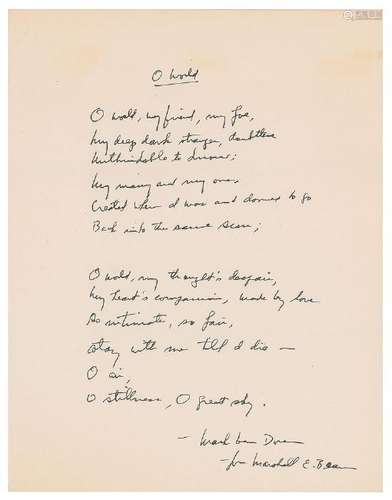 O World
O world, my friend, my foe,
My deep dark stranger, doubtless
Unthinkable to know;
My many and my one,
Created when I was and doomed to go
Back into the same sun;
O world, my thought's despair,
My heart's companion, made by love
So intimate, so fair,
Stay with me till I die —
O air,
O stillness, O great sky.
— Mark Van Doren
for Marshall E. Bean